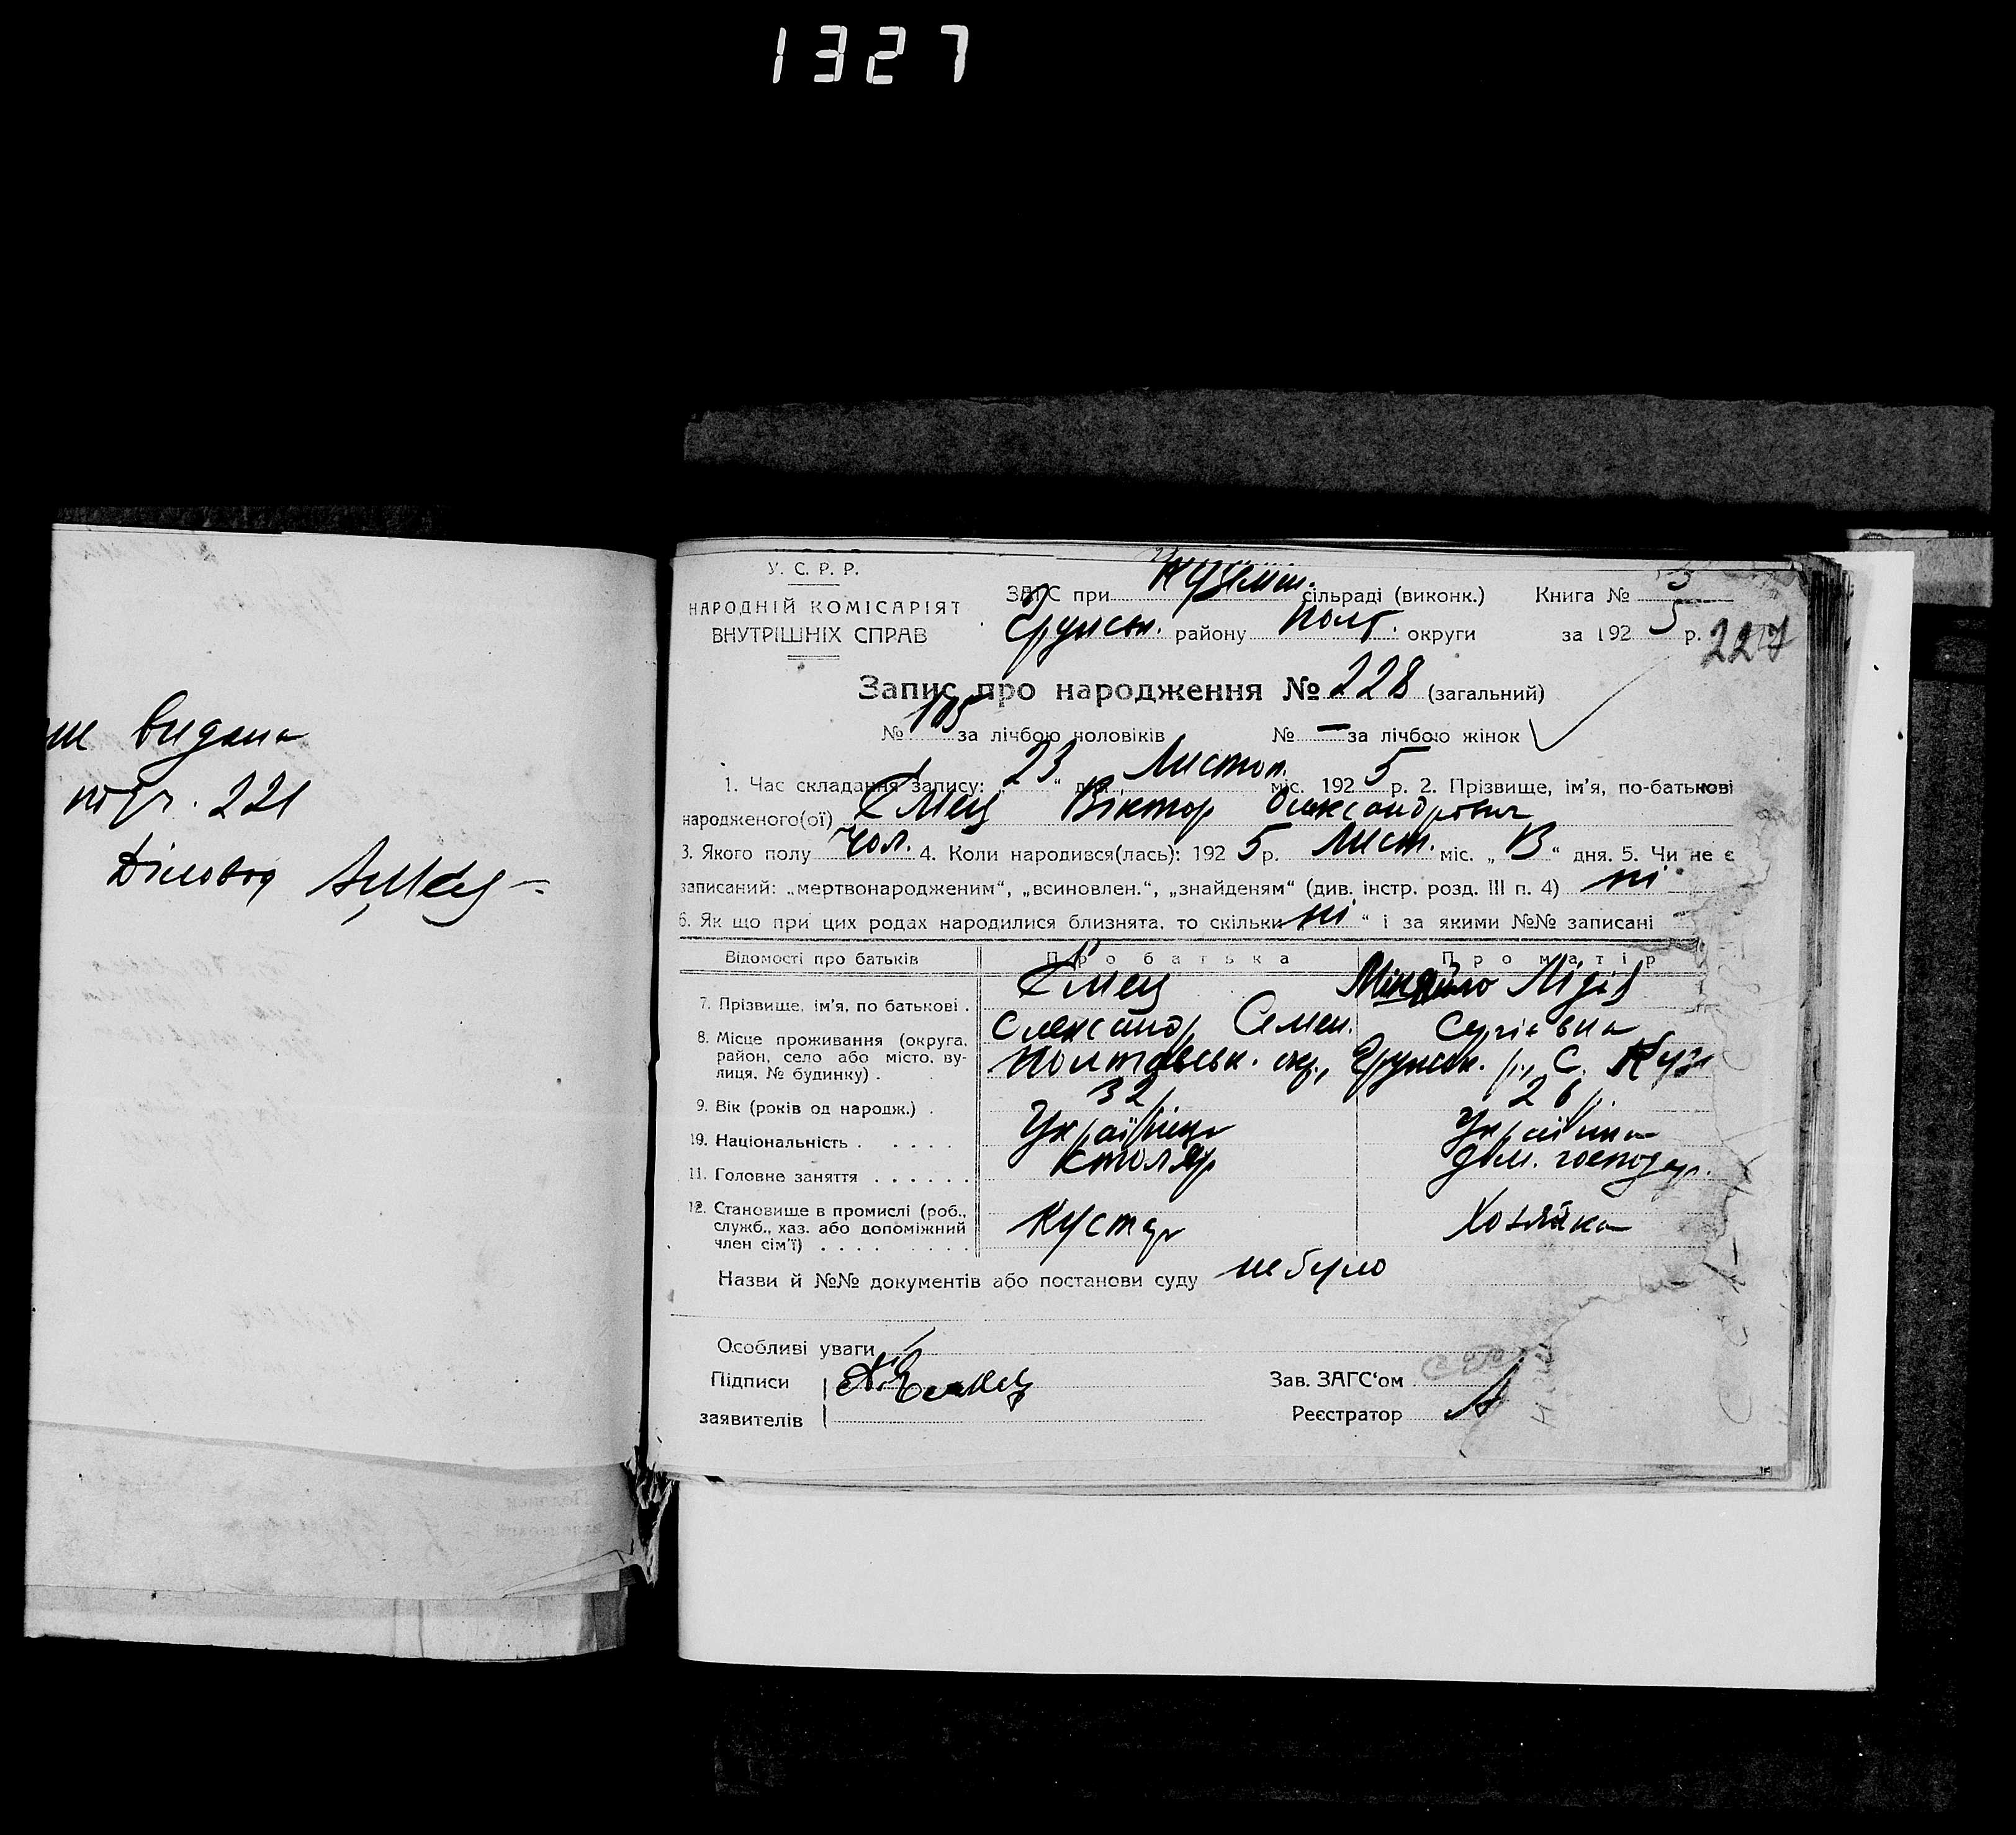 1327
видана
221
Діловод
У. С. Р. Р.
НАРОДНІЙ КОМІСАРІЯТ
ВНУТРІШНІХ СПРАВ
ЗАГС при Кузем. сільраді (виконк.) Книга № 5
Грунськ. району Полт. округи за 192 5 р.
227
Запис про народження № 228 (загальний)
№ 105 за лічбою чоловіків № — за лічбою жінок
1. Час складання запису: „ 23 “ дня Листоп. міс. 192 5 р. 2. Прізвище, ім'я, по-батькові
народженого(ої) Ємец Віктор Олександрович
3. Якого полу Чол. 4. Коли народився(лась): 192 5 р. Лист. міс. „ 13 “ дня. 5. Чи не є
записаний: „мертвонародженим“, „всиновлен.“, „знайденям“ (див. інстр. розд. III п. 4) ні
6. Як що при цих родах народилися близнята, то скільки ні “ і за якими №№ записані
Відомості про батьків Про батька Про матір
7. Прізвище, ім'я, по батькові . Ємец Олександр Семен. Лідія Сергієвна
8. Місце проживання (округа, район, село або місто, вулиця, № будинку) . Полтавськ. окр., Грунськ. р., С. Куз
9. Вік (років од народж.) . 32 26
10. Національність . . . . . Українець Українка
11. Головне заняття . . . . . . Столяр дом. господар.
12. Становище в промислі (роб., служб., хаз. або допоміжний член сім'ї) . . . . Кустар Хозяйка
Назви й №№ документів або постанови суду не було
Особливі уваги
Підписи Зав. ЗАГС'ом
заявителів Реєстратор